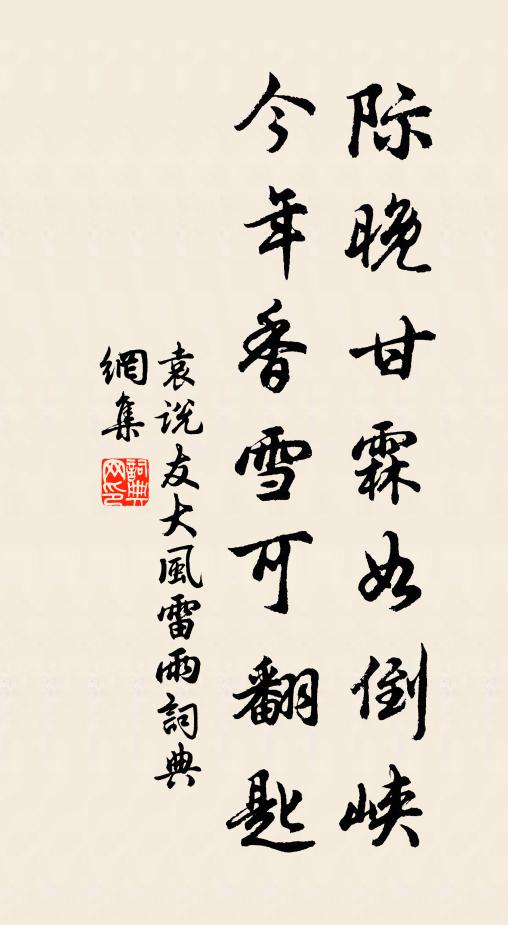 际晚甘霖如倒峡
今年香雪可翻匙
袁说友大風雷雨詞典
網集
詞典网印